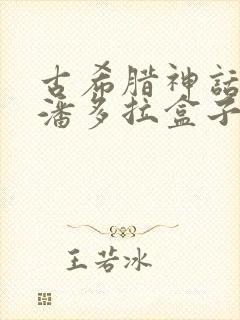 古希腊神話
潘多拉盒子
王若冰